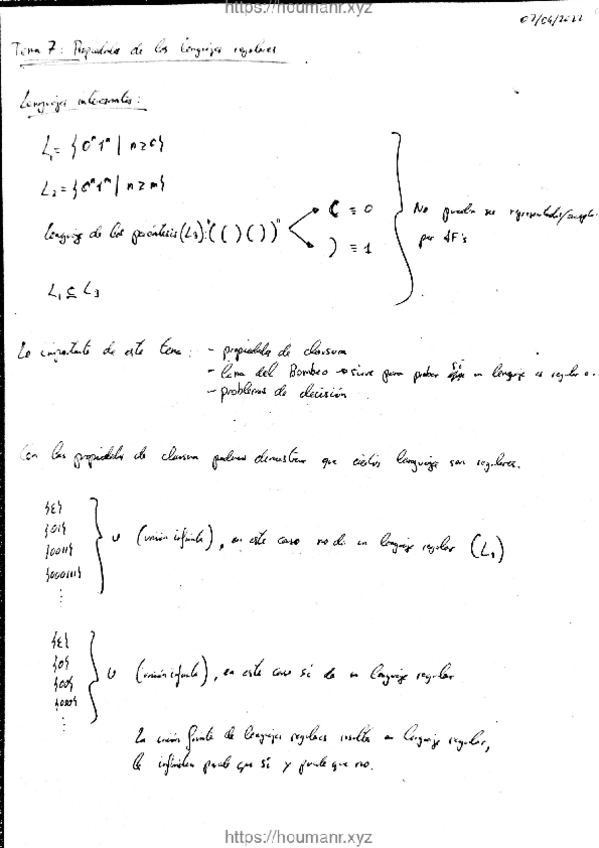 https://houmanr.xyz
07/04/2022
Tema 7: Propiedades de los lenguajes regulares
Lenguajes interesantes:
L₁ = {0ⁿ1ⁿ | n≥0}
L₂ = {0ⁿ1ᵐ | n≥m}
lenguaje de los paréntesis (L₃): "( ( ) ( ) )"
( ≡ 0
) ≡ 1
No pueden ser representados/
por AF's
L₁ ⊆ L₃
Lo importante de este tema: - propiedades de clausura
- lema del Bombeo → sirve para probar si un lenguaje es regular o
- problemas de decisión
Con las propiedades de clausura podemos demostrar que ciertos lenguajes son regulares.
{ε}
{01}
{0011}
{000111}
⋮
∪ (unión infinita), en este caso no da un lenguaje regular (L₁)
{ε}
{0}
{00}
{000}
⋮
∪ (unión infinita), en este caso sí da un lenguaje regular
La unión finita de lenguajes regulares resulta un lenguaje regular,
la infinita puede que sí y puede que no.
https://houmanr.xyz